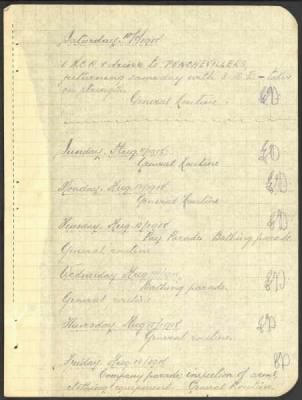 Saturday, 10/8/1918
1 N.C.O. & driver to PUCHEVILLERS,
returning same day with
on strength.
General Routine.
Sunday, Aug 11/1918
General Routine
Monday, Aug 12/1918
General Routine
Tuesday, Aug 13/1918
Pay Parade. Bathing parade.
General routine
Wednesday Aug 14/1918
Bathing parade.
General routine
Thursday, Aug 15/1918
General routine.
Friday, Aug 16/1918
Company parade, inspection of arms,
clothing equipment. General Routine.